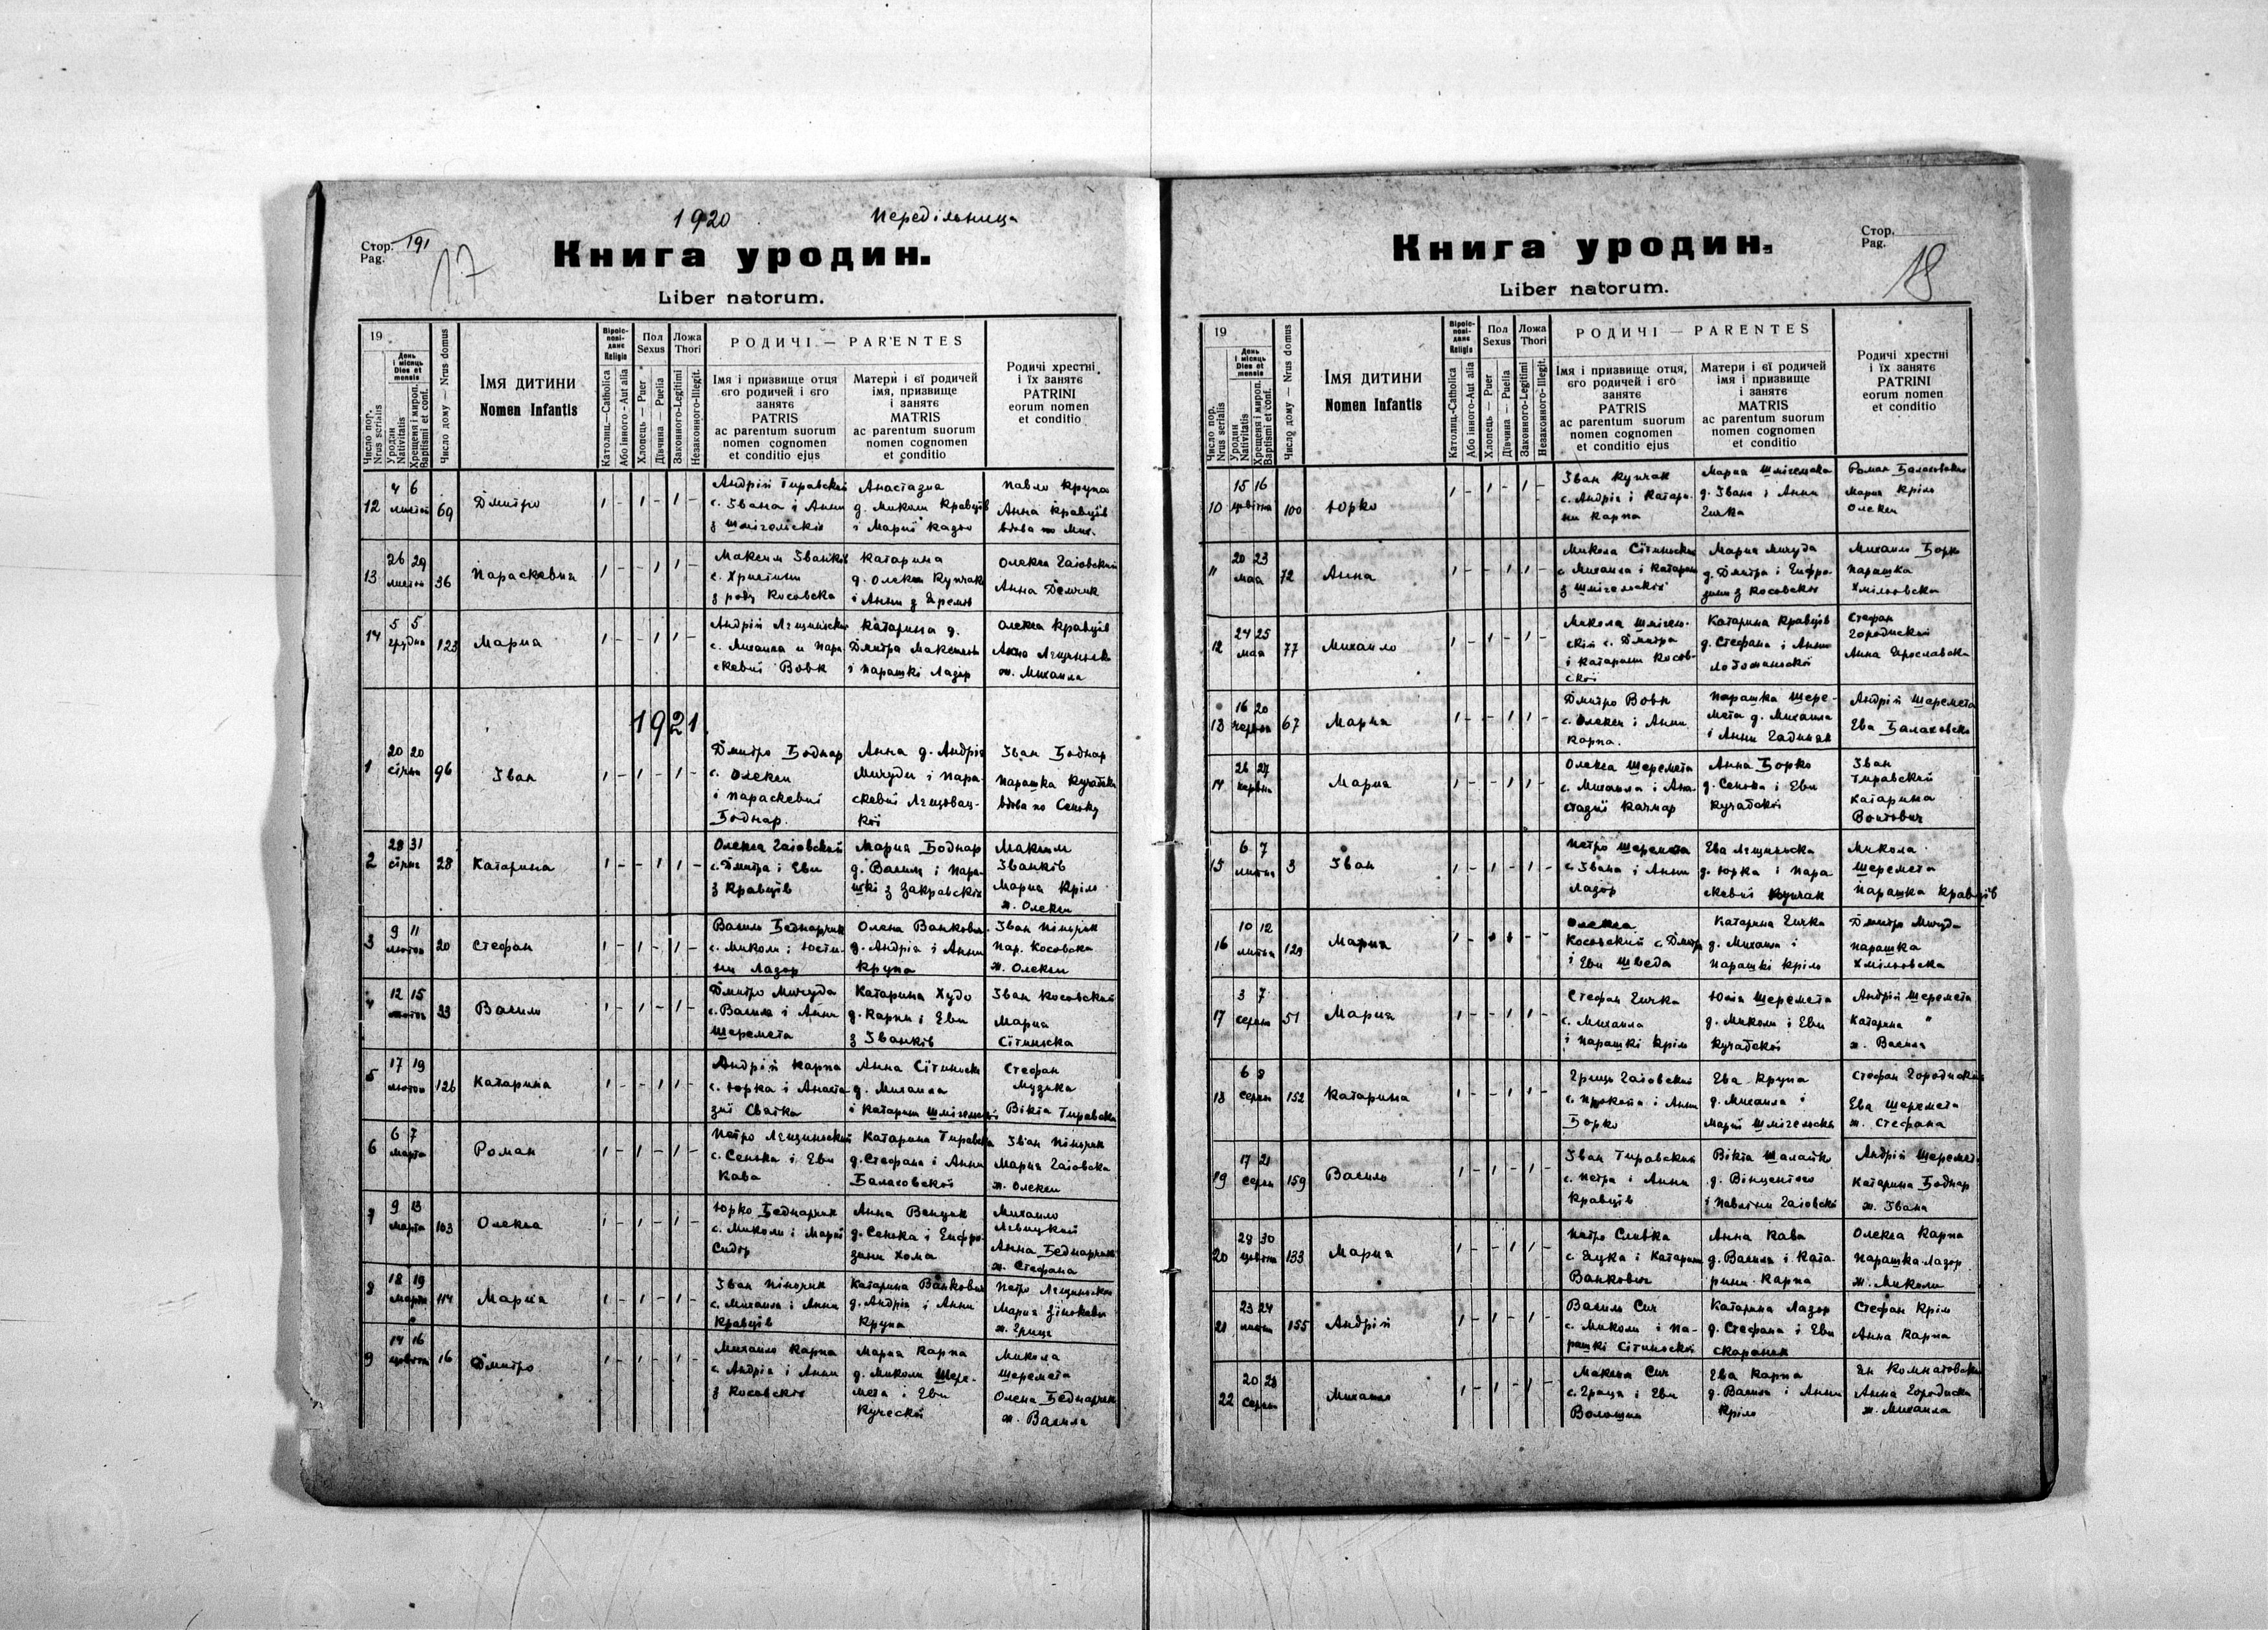 1920 Передільница
Стор. 191
Pag.
17
Книга уродин.
Liber natorum.
19
День і місяць Dies et mensis
Число пор. Nrus serialis
Уродин Nativitatis
Хрещеня і миров. Baptismi et conf.
Число дому — Nrus domus
Імя дитини
Nomen Infantis
Віроісповідане Religio
Католиц.—Catholica
Або інного - Aut alia
Пол Sexus
Хлопець — Puer
Дівчина — Puella
Ложа Thori
Законного-Legitimi
Незаконного-Illegit.
РОДИЧІ — PARENTES
Імя і призвище отця
єго родичей і єго
занятє
PATRIS
ac parentum suorum
nomen cognomen
et conditio ejus
Матери і єї родичей
імя, призвище
і занятє
MATRIS
ac parentum suorum
nomen cognomen
et conditio
Родичі хрестні
і їх занятє
PATRINI
eorum nomen
et conditio
12 4 6 69 Дмитро 1 - 1 - 1 -
Андрій Тиравский
с. Івана і Анни
Анастазиа
д. Миколи Кравців
і Марії
Павло Крупа
Анна Кравців
вдова по Мих.
13 26 29 36 Параскевия 1 - - 1 1 -
Максим Іванків
с. Христини
з роду Косовска
Катарина
д. Олекси Купчак
і Анни з Яремів
Олекса Гаіовский
Анна Демчик
14 5 5 грудня 123 Мариа 1 - - 1 1 -
с. Михаила и Пара-
скевії Вовк
Катарина д.
Дмитра
і Парашкі Лазор
Олекса Кравців
ж. Михаила
1921
1 20 20 січня 96 Іван 1 - 1 - 1 -
Дмитро Боднар
с. Олекси
і Параскевиї
Боднар.
Анна д. Андрія
Мичуди і Пара-
скевиї
Іван Боднар
Парашка
вдова по Сеньку
2 28 31 січня 28 Катарина 1 - - 1 1 -
Олекса Гаіовский
с. Дмитра і Еви
з Кравців
Мариа Боднар
д. Василя і Пара-
шкі з Закравскіх
Максим
Іванків
Мариа Кріль
ж. Олекси
3 9 11 20 Стефан 1 - 1 - 1 -
Василь Беднарчик
с. Миколи і Юсти-
ни Лазор
Олена Ванкович
д. Андрія і Анни
Крупа
Іван Піньчик
Пар. Косовска
ж. Олекси
4 12 15 33 Василь 1 - 1 - 1 -
Дмитро Мичуда
с. Василя і Анни
Шеремета
Катарина Худо
д. Карпа і Еви
з Іванків
Іван Косовский
Мариа
Сітиньска
5 17 19 126 Катарина 1 - - 1 1 -
Андрій Карпа
с. Юрка і Анаста-
зиї Сватка
Анна Сітиньска
д. Михаила
і Катарини
Стефан
Музика
Вікта Тиравска
6 6 7 марта Роман 1 - 1 - 1 -
с. Сенька і Еви
Кава
Катарина Тиравска
д. Стефана і Анни
Балаговскої
Іван Піньчик
Мариа Гаіовска
ж. Олекси
7 9 13 марта 103 Олекса 1 - 1 - 1 -
Юрко Беднарчик
с. Миколи і Марії
Сидор
Анна Венцик
д. Сенька і Евфро-
зини Хома
Михаило
Левицкий
Анна Беднарчик
ж. Стефана
8 18 19 марта 114 Мариа 1 - 1 - 1 -
Іван Піньчик
с. Михаила і Анни
Кравців
Катарина Ванкович
д. Андрія і Анни
Крупа
Петро
Мариа
ж. Гриця
9 14 16 цвітня 16 Дмитро 1 - 1 - 1 -
Михаило Карпа
с. Андрія і Анни
з Косовскіх
Мариа Карпа
д. Миколи Шере-
мета і Еви
Микола
Шеремета
Олена Беднарчик
ж. Василя
Книга уродин.
Liber natorum.
Стор.
Pag.
18
19
День і місяць Dies et mensis
Число пор. Nrus serialis
Уродин Nativitatis
Хрещеня і миров. Baptismi et conf.
Число дому — Nrus domus
Імя дитини
Nomen Infantis
Віроісповідане Religio
Католиц.—Catholica
Або інного-Aut alia
Пол Sexus
Хлопець — Puer
Дівчина — Puella
Ложа Thori
Законного-Legitimi
Незаконного-Illegit.
РОДИЧІ — PARENTES
Імя і призвище отця,
єго родичей і єго
занятє
PATRIS
ac parentum suorum
nomen cognomen
et conditio ejus
Матери і єї родичей
імя і призвище
і занятє
MATRIS
ac parentum suorum
nomen cognomen
et conditio
Родичі хрестні
і їх занятє
PATRINI
eorum nomen
et conditio
10 15 16 цвітня 100 Юрко 1 - 1 - 1 -
Іван Купчак
с. Андрія і Катари-
ни Карпа
Мариа Шмігельска
д. Івана і Анни
Гичка
Роман
Мариа Кріль
Олекси
11 20 23 мая 72 Анна 1 - - 1 1 -
Микола Сітиньский
с. Михаила і Катарини
з Шмігельскіх
Мариа Мичуда
д. Дмитра і Евфро-
зини з Косовскіх
Михаило Борко
Парашка
Хмільовска
12 24 25 мая 77 Михаило 1 - 1 - 1 -
Микола Шмігель-
ский с. Дмитра
і Катарини Косов-
скої
Катарина Кравців
д. Стефана і Анни
Стефан
Городиский
Анна Ярославска
13 16 20 червня 67 Мариа 1 - - 1 1 -
Дмитро Вовк
с. Олекси і Анни
Карпа.
Парашка Шере-
мета д. Михаила
і Анни
Андрій Шеремета
Ева
14 26 27 червня Мариа 1 - - 1 1 -
Олекса Шеремета
с. Михаила і Ана-
стазиї Качмар
Анна Борко
д. Сенька і Еви
Іван
Тиравский
Катарина
Войтович
15 6 7 3 Іван 1 - 1 - 1 -
Петро Шеремета
с. Івана і Анни
Лазор
Ева
д. Юрка і Пара
скевиї Купчак
Микола
Шеремета
Парашка Кравців
16 10 12 129 Мариа
Олекса
Косовский с. Дмитра
і Еви Шведа
Катарина Гичка
д. Михаила і
Парашкі Кріль
Дмитро Мичуда
Парашка
Хмільовска
17 3 7 серпня 51 Мариа 1 - - 1 1 -
Стефан Гичка
с. Михаила
і Парашкі Кріль
Юлія Шеремета
д. Миколи і Еви
Андрій Шеремета
Катарина "
ж. Василя
18 6 8 серпня 152 Катарина 1 - - 1 1 -
Гриць Гаіовский
с. Прокопа і Анни
Борко
Ева Крупа
д. Михаила і
Марії Шмігельскої
Стефан Городиский
Ева Шеремета
ж. Стефана
19 17 21 серпня 159 Василь 1 - 1 - 1 -
Іван Тиравский
с. Петра і Анни
Кравців
Вікта
д. Вінцентого
Андрій Шеремета
Катарина Боднар
ж. Івана
20 133 Мариа 1 - - 1 1 -
Петро Сливка
с. Яцка і Катарини
Ванкович
Анна Кава
д. Василя і Ката-
рини Карпа
Олекса Карпа
Парашка Лазор
ж. Миколи
21 23 24 155 Андрій 1 - 1 - 1 -
Василь Сич
с. Миколи і Па-
рашкі Сітиньскої
Катарина Лазор
д. Стефана і Еви
Стефан Кріль
Анна Карпа
22 20 28 серпня Михаил 1 - 1 - 1 -
Максим Сич
с. Гриця і Еви
Волошин
Ева Карпа
д. Василя і Анни
Кріль
Анна Городиска
ж. Михаила